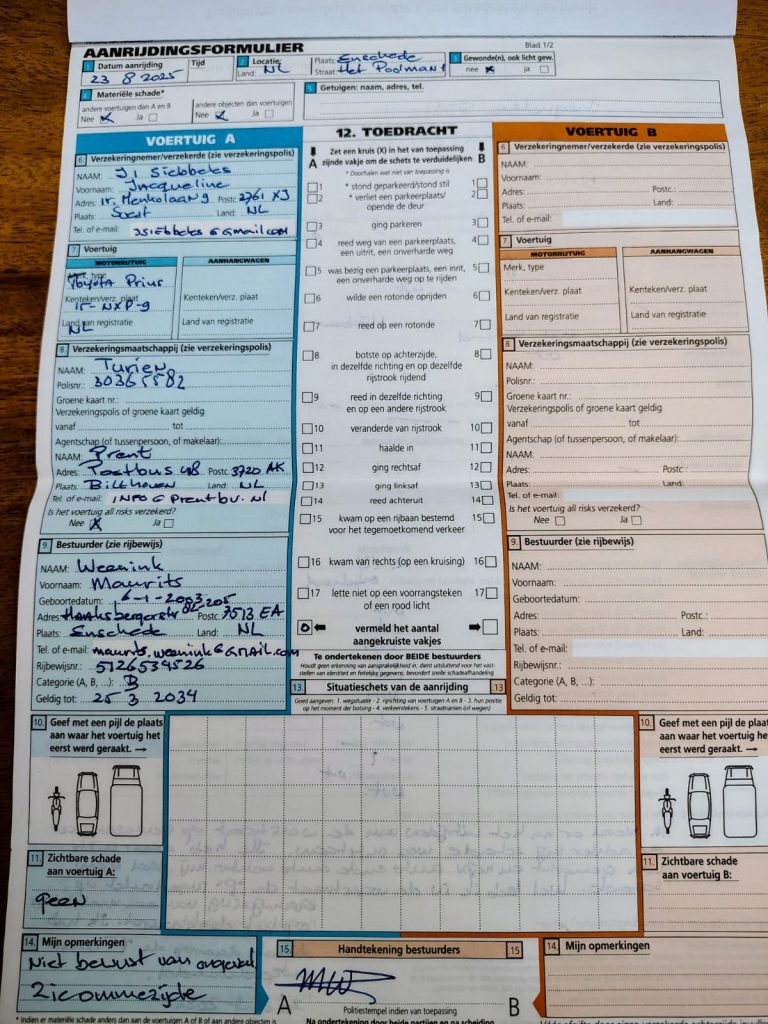 AANRIJDINGSFORMULIER
Blad 1/2
1. Datum aanrijding
Tijd
23 8 2025
2. Locatie
Land: NL
Plaats: Enschede
Straat: Het Poolman 1
3. Gewonde(n), ook licht gew.
nee X ja
4. Materiële schade*
andere voertuigen dan A en B
Nee X Ja
andere objecten dan voertuigen
Nee X Ja
5. Getuigen: naam, adres, tel.
VOERTUIG A
6. Verzekeringnemer/verzekerde (zie verzekeringspolis)
NAAM: JI Siebbeles
Voornaam: Jacqueline
Adres: ir. Menkolaan 9 Postc. 3761 XJ
Plaats: Soest Land: NL
Tel. of e-mail: JSiebbeles@Gmail.com
7. Voertuig
MOTORRIJTUIG
AANHANGWAGEN
Merk, type
Toyota Prius
Kenteken/verz. plaat
15-NXP-9
Kenteken/verz. plaat
Land van registratie
NL
Land van registratie
8. Verzekeringsmaatschappij (zie verzekeringspolis)
NAAM: Turien
Polisnr.: 30365582
Groene kaart nr.:
Verzekeringspolis of groene kaart geldig
vanaf tot
Agentschap (of tussenpersoon, of makelaar):
NAAM: Prent
Adres: Postbus 48 Postc. 3720 AK
Plaats: Bilthoven Land: NL
Tel. of e-mail: INFO@Prentbv.nl
Is het voertuig all risks verzekerd?
Nee X Ja
9. Bestuurder (zie rijbewijs)
NAAM: Weenink
Voornaam: Maurits
Geboortedatum: 6-1-2003
Adres: Haaksbergerstr 205 Postc. 7513 EA
Plaats: Enschede Land: NL
Tel. of e-mail: maurits.weenink@GMail.com
Rijbewijsnr.: 5126534526
Categorie (A, B, ...): B
Geldig tot: 25 3 2034
12. TOEDRACHT
A
Zet een kruis (X) in het van toepassing
zijnde vakje om de schets te verduidelijken
B
* Doorhalen wat niet van toepassing is
1 * stond geparkeerd/stond stil 1
2 * verliet een parkeerplaats/ 2
opende de deur
3 ging parkeren 3
4 reed weg van een parkeerplaats, 4
een uitrit, een onverharde weg
5 was bezig een parkeerplaats, een inrit, 5
een onverharde weg op te rijden
6 wilde een rotonde oprijden 6
7 reed op een rotonde 7
8 botste op achterzijde, 8
in dezelfde richting en op dezelfde
rijstrook rijdend
9 reed in dezelfde richting 9
en op een andere rijstrook
10 veranderde van rijstrook 10
11 haalde in 11
12 ging rechtsaf 12
13 ging linksaf 13
14 reed achteruit 14
15 kwam op een rijbaan bestemd 15
voor het tegemoetkomend verkeer
16 kwam van rechts (op een kruising) 16
17 lette niet op een voorrangsteken 17
of een rood licht
0 vermeld het aantal
aangekruiste vakjes
Te ondertekenen door BEIDE bestuurders
Houdt geen erkenning van aansprakelijkheid in; dient uitsluitend voor het vast-
stellen van identiteit en feitelijke gegevens; bevordert snelle schadeafhandeling
VOERTUIG B
6. Verzekeringnemer/verzekerde (zie verzekeringspolis)
NAAM:
Voornaam:
Adres: Postc.:
Plaats: Land:
Tel. of e-mail:
7. Voertuig
MOTORRIJTUIG
AANHANGWAGEN
Merk, type
Kenteken/verz. plaat
Kenteken/verz. plaat
Land van registratie
Land van registratie
8. Verzekeringsmaatschappij (zie verzekeringspolis)
NAAM:
Polisnr.:
Groene kaart nr.:
Verzekeringspolis of groene kaart geldig
vanaf tot
Agentschap (of tussenpersoon, of makelaar):
NAAM:
Adres: Postc.:
Plaats: Land:
Tel. of e-mail:
Is het voertuig all risks verzekerd?
Nee Ja
9. Bestuurder (zie rijbewijs)
NAAM:
Voornaam:
Geboortedatum:
Adres: Postc.:
Plaats: Land:
Tel. of e-mail:
Rijbewijsnr.:
Categorie (A, B, ...):
Geldig tot:
13. Situatieschets van de aanrijding 13
Goed aangeven: 1. wegsituatie - 2. rijrichting van voertuigen A en B - 3. hun positie
op het moment der botsing - 4. verkeerstekens - 5. straatnamen (of wegen)
10. Geef met een pijl de plaats
aan waar het voertuig het
eerst werd geraakt.
10. Geef met een pijl de plaats
aan waar het voertuig het
eerst werd geraakt.
11. Zichtbare schade
aan voertuig A:
geen
11. Zichtbare schade
aan voertuig B:
14. Mijn opmerkingen
Niet bewust van ongeval
Zie ommezijde
15. Handtekening bestuurders 15
A
B
Politiestempel indien van toepassing
14. Mijn opmerkingen
* Indien er materiële schade anders dan aan de voertuigen A of B of aan andere objecten is
Na ondertekening door beide partijen en na scheiding